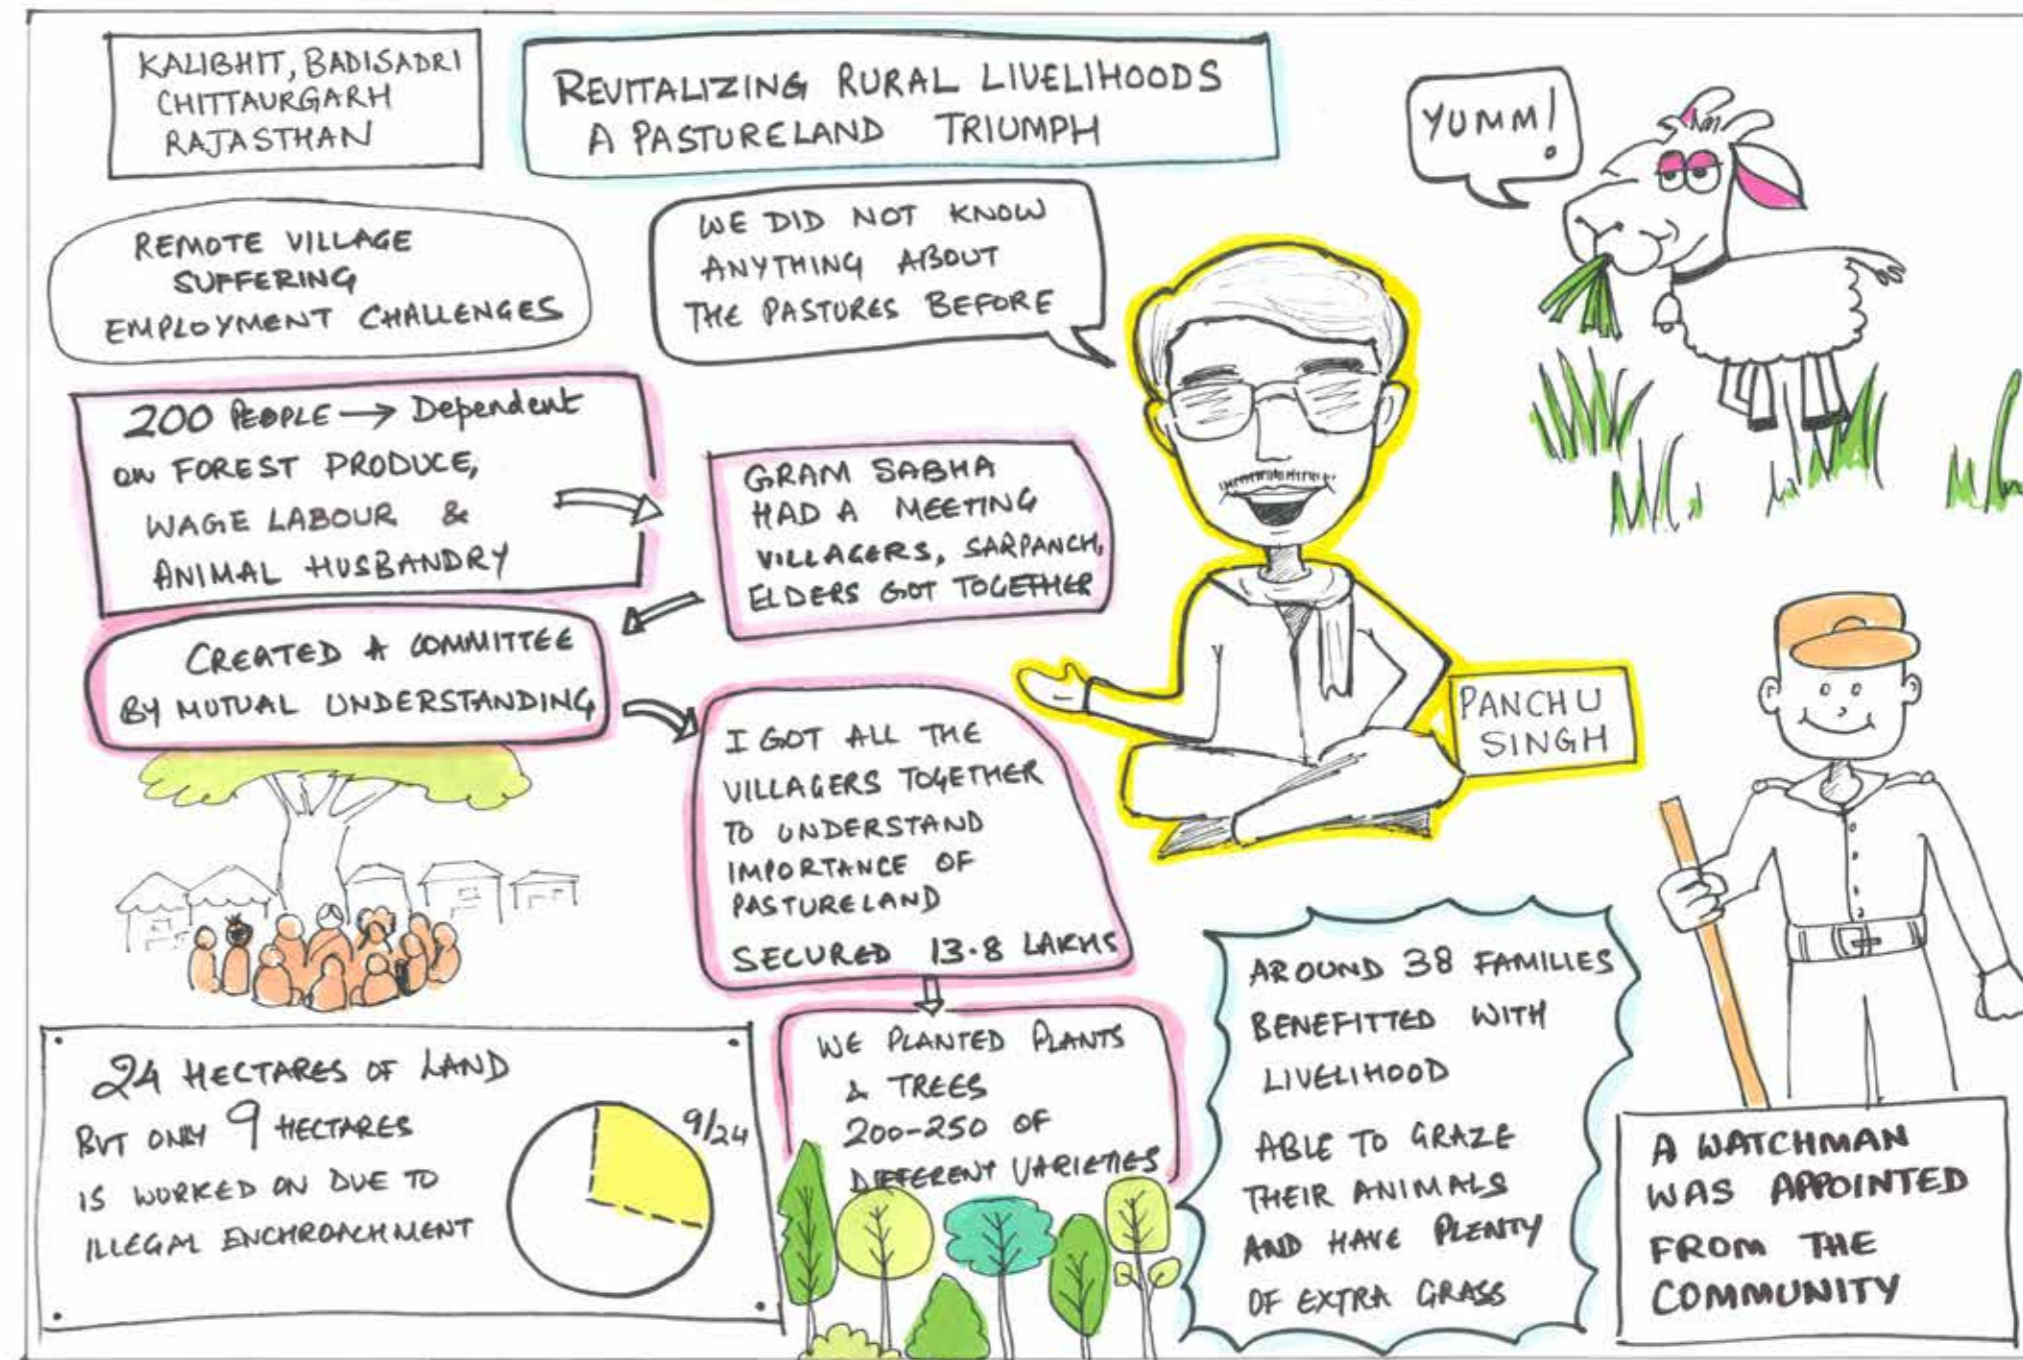 KALIBHIT, BADISADRI
CHITTAURGARH
RAJASTHAN
REVITALIZING RURAL LIVELIHOODS
A PASTURELAND TRIUMPH
YUMM!
REMOTE VILLAGE
SUFFERING
EMPLOYMENT CHALLENGES
WE DID NOT KNOW
ANYTHING ABOUT
THE PASTURES BEFORE
200 PEOPLE → Dependent
ON FOREST PRODUCE,
WAGE LABOUR &
ANIMAL HUSBANDRY
GRAM SABHA
HAD A MEETING
VILLAGERS, SARPANCH,
ELDERS GOT TOGETHER
CREATED A COMMITTEE
BY MUTUAL UNDERSTANDING
I GOT ALL THE
VILLAGERS TOGETHER
TO UNDERSTAND
IMPORTANCE OF
PASTURELAND
SECURED 13.8 LAKHS
PANCHU
SINGH
24 HECTARES OF LAND
BUT ONLY 9 HECTARES
IS WORKED ON DUE TO
ILLEGAL ENCHROACHMENT
9/24
WE PLANTED PLANTS
& TREES
200-250 OF
DIFFERENT VARIETIES
AROUND 38 FAMILIES
BENEFITTED WITH
LIVELIHOOD
ABLE TO GRAZE
THEIR ANIMALS
AND HAVE PLENTY
OF EXTRA GRASS
A WATCHMAN
WAS APPOINTED
FROM THE
COMMUNITY